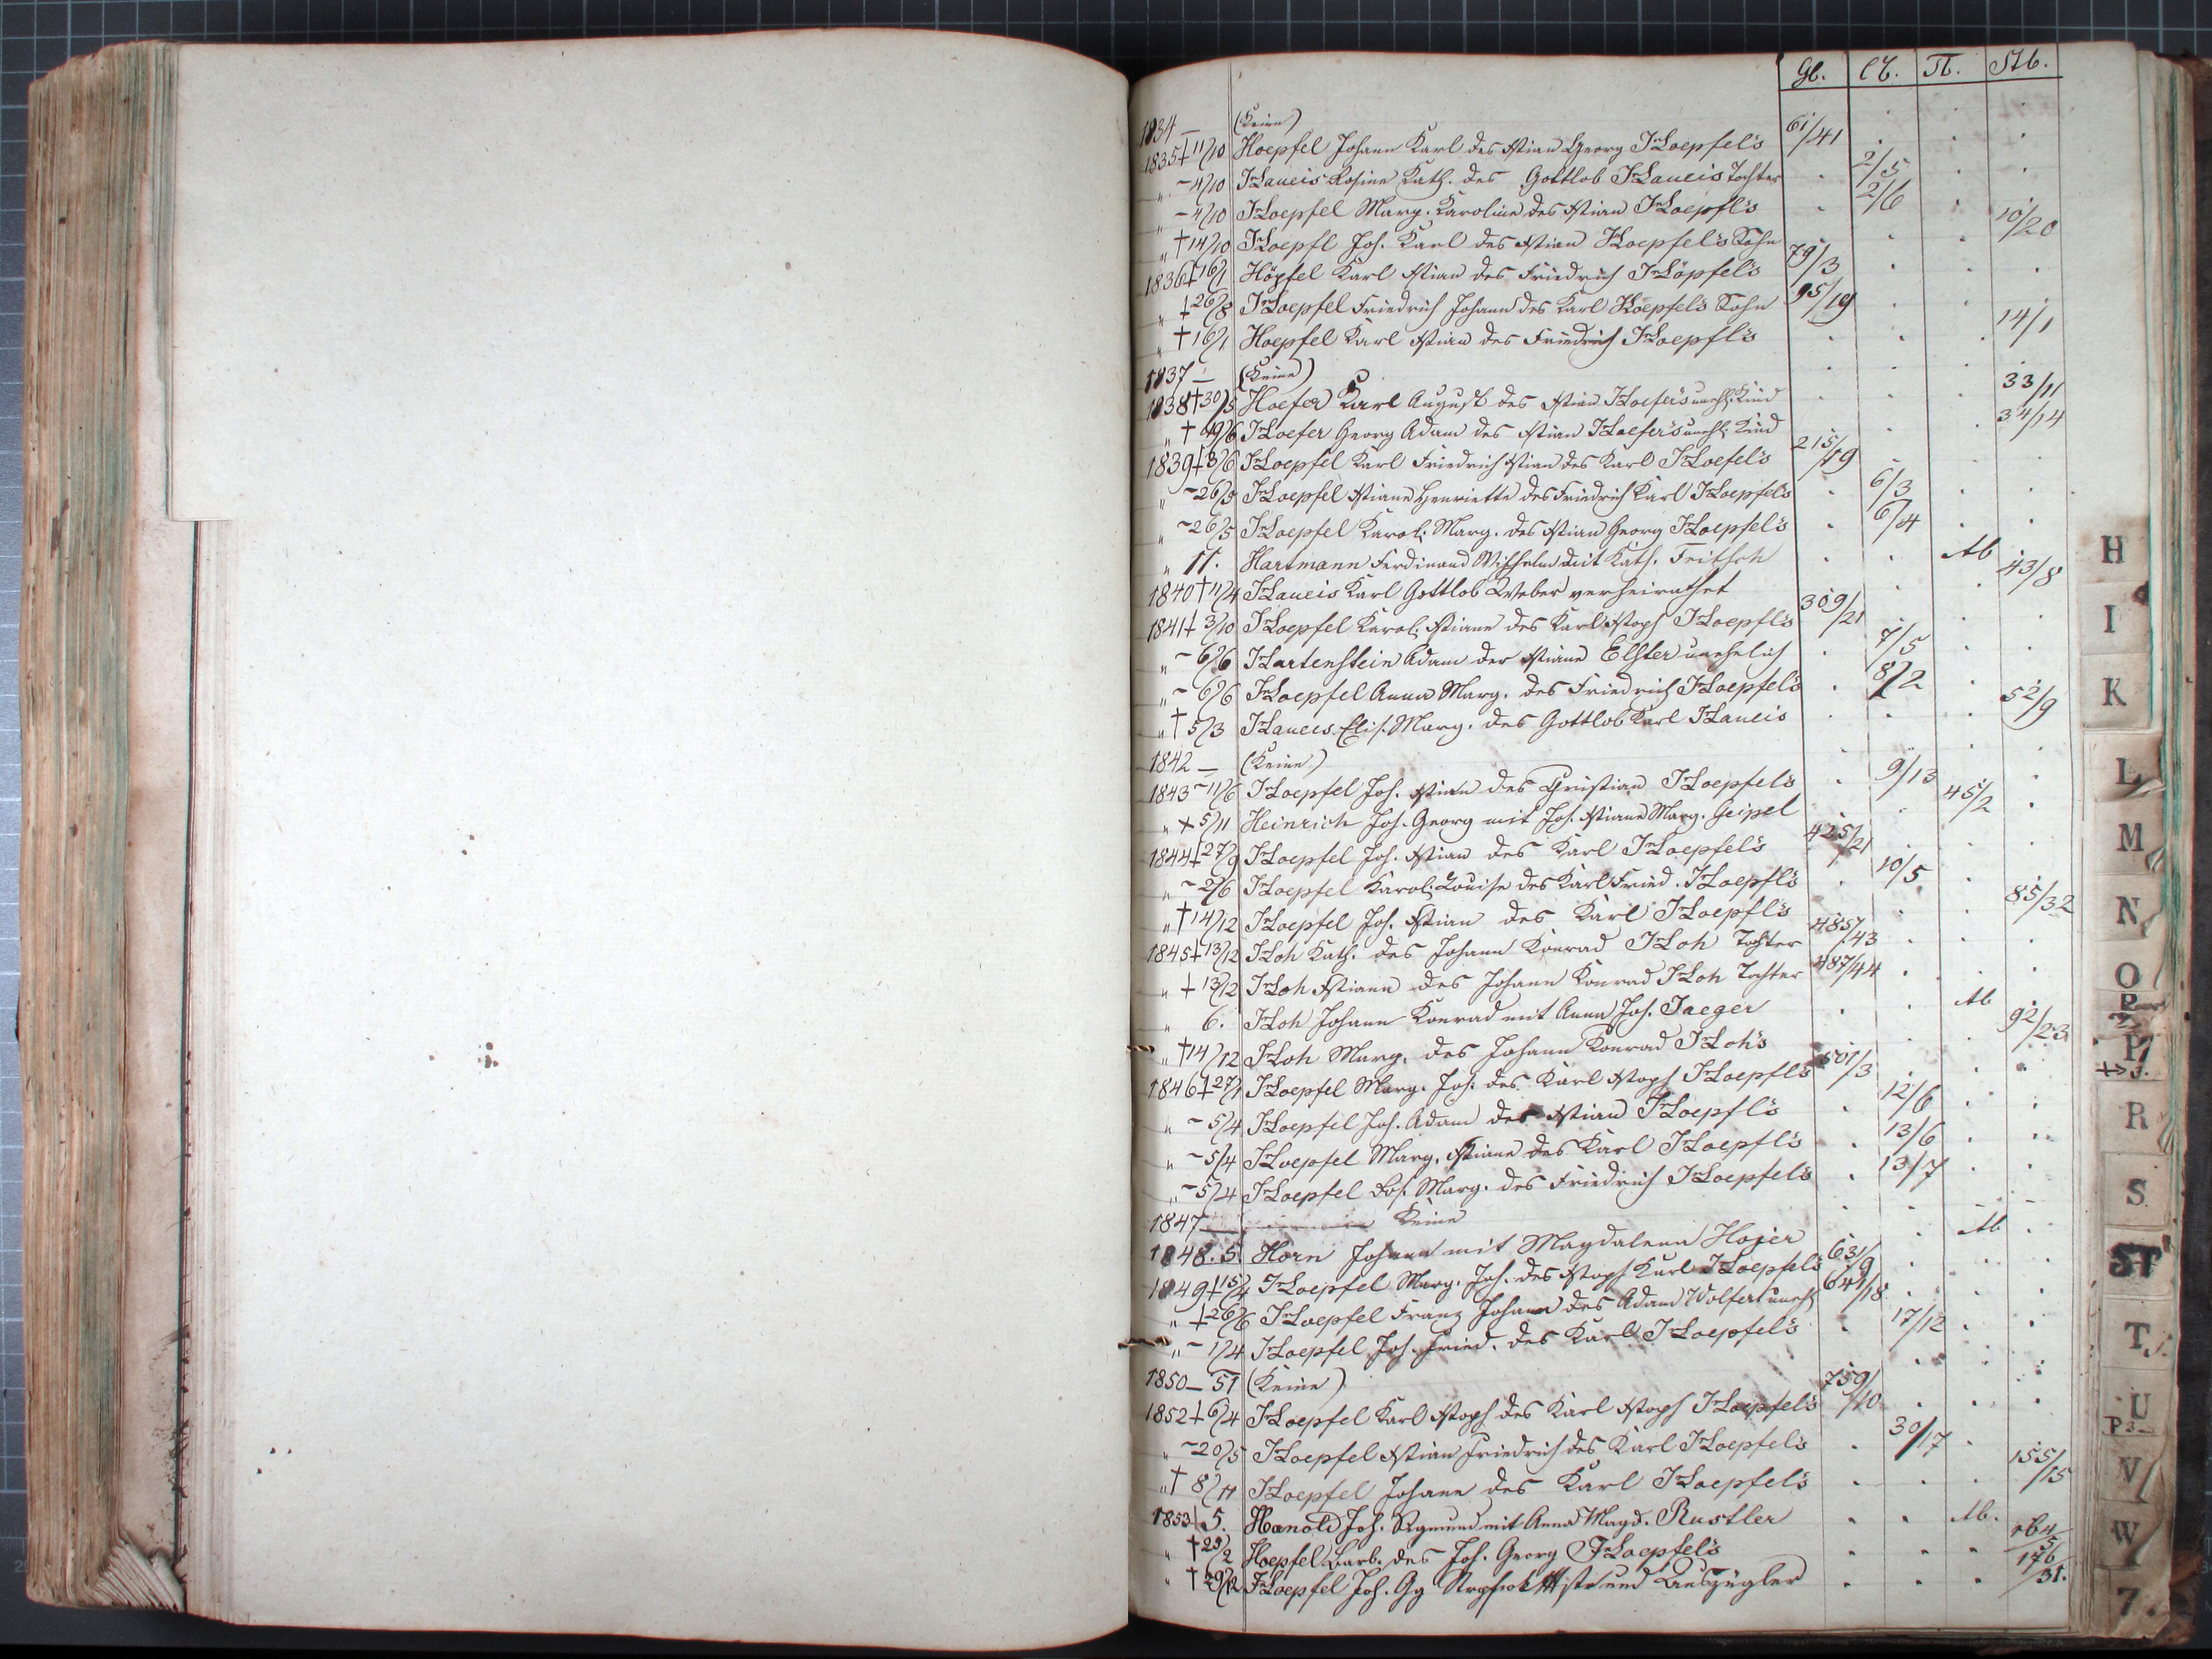 Gb. Cf. Tr. Stb.
1834 — (Keine)
1835 + 11/10 Hoepfel Johann Karl des Xtian Georg Hoepfel's 61/41
„ - 4/10 Haueis Rosine Kath. des Gottlob Haueis Tochter 2/5
„ - 4/10 Hoepfel Marg. Karoline des Xtian Hoepfl's 2/6
„ † 14/10 Hoepfl Joh. Karl des Xtian Hoepfel's Sohn 10/20
1836 + 16/1 Höpfel Karl Xtian des Friedrich Höpfel's 79/3
„ + 26/8 Hoepfel Friedrich Johann des Karl Hoepfel's Sohn 95/19
„ † 16/1 Hoepfel Karl Xtian des Friedrich Hoepfl's 14/1
1837 — (Keine)
1838 † 30/5 Hoefer Karl August des Xtian Hoefer's unehl. Kind 33/11
„ † /6 Hoefer Georg Adam des Xtian Hoefer's unehl. Kind 34/14
1839 + 3/6 Hoepfel Karl Friedrich Xtian des Karl Hoefel's 215/19
„ - 26/5 Hoepfel Xtiane Henriette des Friedrich Karl Hoepfel's 6/3
„ - 26/5 Hoepfel Karol. Marg. des Xtian Georg Hoepfel's 6/4
„ 11. Hartmann Ferdinand Wilhelm mit Kath. Fritsch Ab
1840 † 11/4 Haueis Karl Gottlob Weber verheirathet 43/8
1841 + 3/10 Hoepfel Karol. Xtiane des Karl Xtoph Hoepfl's 309/21
„ - 6/6 Hartenstein Adam der Xtiane Elster unehelich 7/5
„ - 6/6 Hoepfel Anna Marg. des Friedrich Hoepfel's 8/2
„ † 5/3 Haueis Elis. Marg. des Gottlob Karl Haueis 52/9
1842 — (Keine)
1843 - 11/6 Hoepfel Joh. Xtian des Christian Hoepfel's 9/13
„ × 5/11 Heinrich Joh. Georg mit Joh. Xtiane Marg. Geipel 45/2
1844 + 27/9 Hoepfel Joh. Xtian des Karl Hoepfel's 425/21
„ - 2/6 Hoepfel Karol. Louise des Karl Fried. Hoepfl's 10/5
„ † 14/12 Hoepfel Joh. Xtian des Karl Hoepfl's 85/32
1845 + 13/12 Hoh Kath. des Johann Konrad Hoh Tochter 485/43
„ + 13/12 Hoh Xtiana des Johann Konrad Hoh Tochter 487/44
„ 6. Hoh Johann Konrad mit Anna Joh. Jaeger Ab
„ † 14/12 Hoh Marg. des Johann Konrad Hoh's 92/23
1846 + 27/1 Hoepfel Marg. Joh. des Karl Xtoph Hoepfl's 501/3
„ - 5/4 Hoepfel Joh. Adam des Xtian Hoepfl's 12/6
„ - 5/4 Hoepfel Marg. Xtiane des Karl Hoepfl's 13/6
„ - 5/4 Hoepfel Marg. des Friedrich Hoepfel's 13/7
1847 — Keine
1848. 5. Horn Johann mit Magdalena Hojer Ab
1849 + 15/4 Hoepfel Marg. Joh. des Xtoph Karl Hoepfel's 631/9
„ + 26/6 Hoepfel Franz Johann des Adam Wolfert unehl 641/18
„ - 1/4 Hoepfel Joh. Fried. des Karl Hoepfel's 17/12
1850 — 51 (Keine)
1852 + 6/4 Hoepfel Karl Xtoph des Karl Xtoph Hoepfel's 759/10
„ - 20/5 Hoepfel Xtian Friedrich des Karl Hoepfel's 30/17
„ † 8/11 Hoepfel Johann des Karl Hoepfel's 155/15
1853 5. Hanold Joh. Sigmund mit Anna Magd. Rustler Ab.
„ † 23/2 Hoepfel Barb. des Joh. Georg Hoepfel's 164/5
„ † 29/12 Hoepfel Joh. Gg und Auszügler 176/31.
H
I
K
L
M
N
O
P
R
S
ST
T
U
V
W
Z.